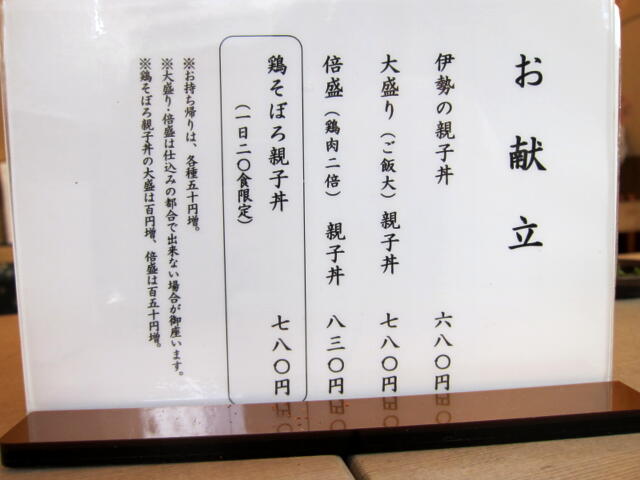 お献立
伊勢の親子丼 六八〇円
大盛り（ご飯大）親子丼 七八〇円
倍盛（鶏肉二倍）親子丼 八三〇円
鶏そぼろ親子丼 七八〇円
（一日二〇食限定）
※お持ち帰りは、各種五十円増。
※大盛り・倍盛は仕込みの都合で出来ない場合が御座います。
※鶏そぼろ親子丼の大盛は百円増、倍盛は百五十円増。